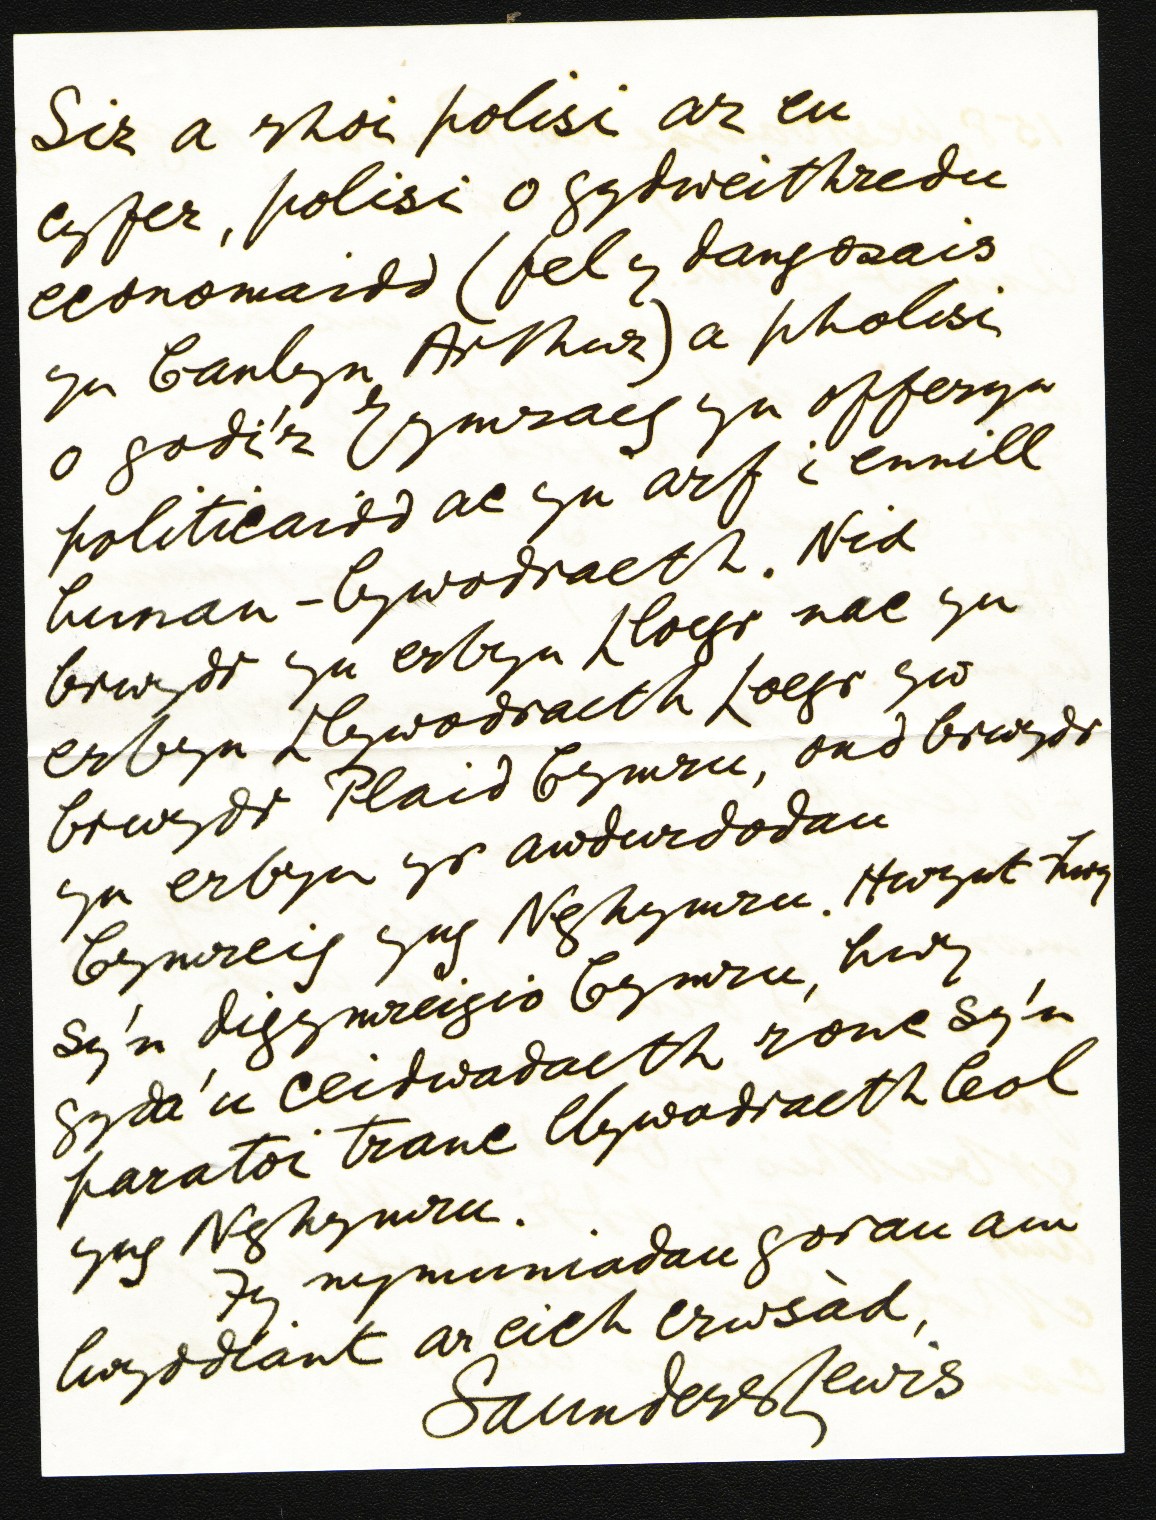 Sir a rhoi polisi ar eu
cyfer, polisi o gydweithredu
economaidd (fel y dangosais
yn Canlyn Arthur) a pholisi
o godi'r Gymraeg yn offeryn
politicaidd ac yn arf i ennill
hunan-lywodraeth. Nid
brwydr yn erbyn Lloegr nac yn
erbyn Llywodraeth Loegr yw
brwydr Plaid Cymru, ond brwydr
yn erbyn yr awdurdodau
Cymreig yng Nghymru. Hwynt-hwy
sy'n digymreigio Cymru, hwy
gyda'u ceidwadaeth ronc sy'n
paratoi tranc llywodraeth leol
yng Nghymru.
Fy nymuniadau gorau am
lwyddiant ar eich crwsâd,
Saunders Lewis